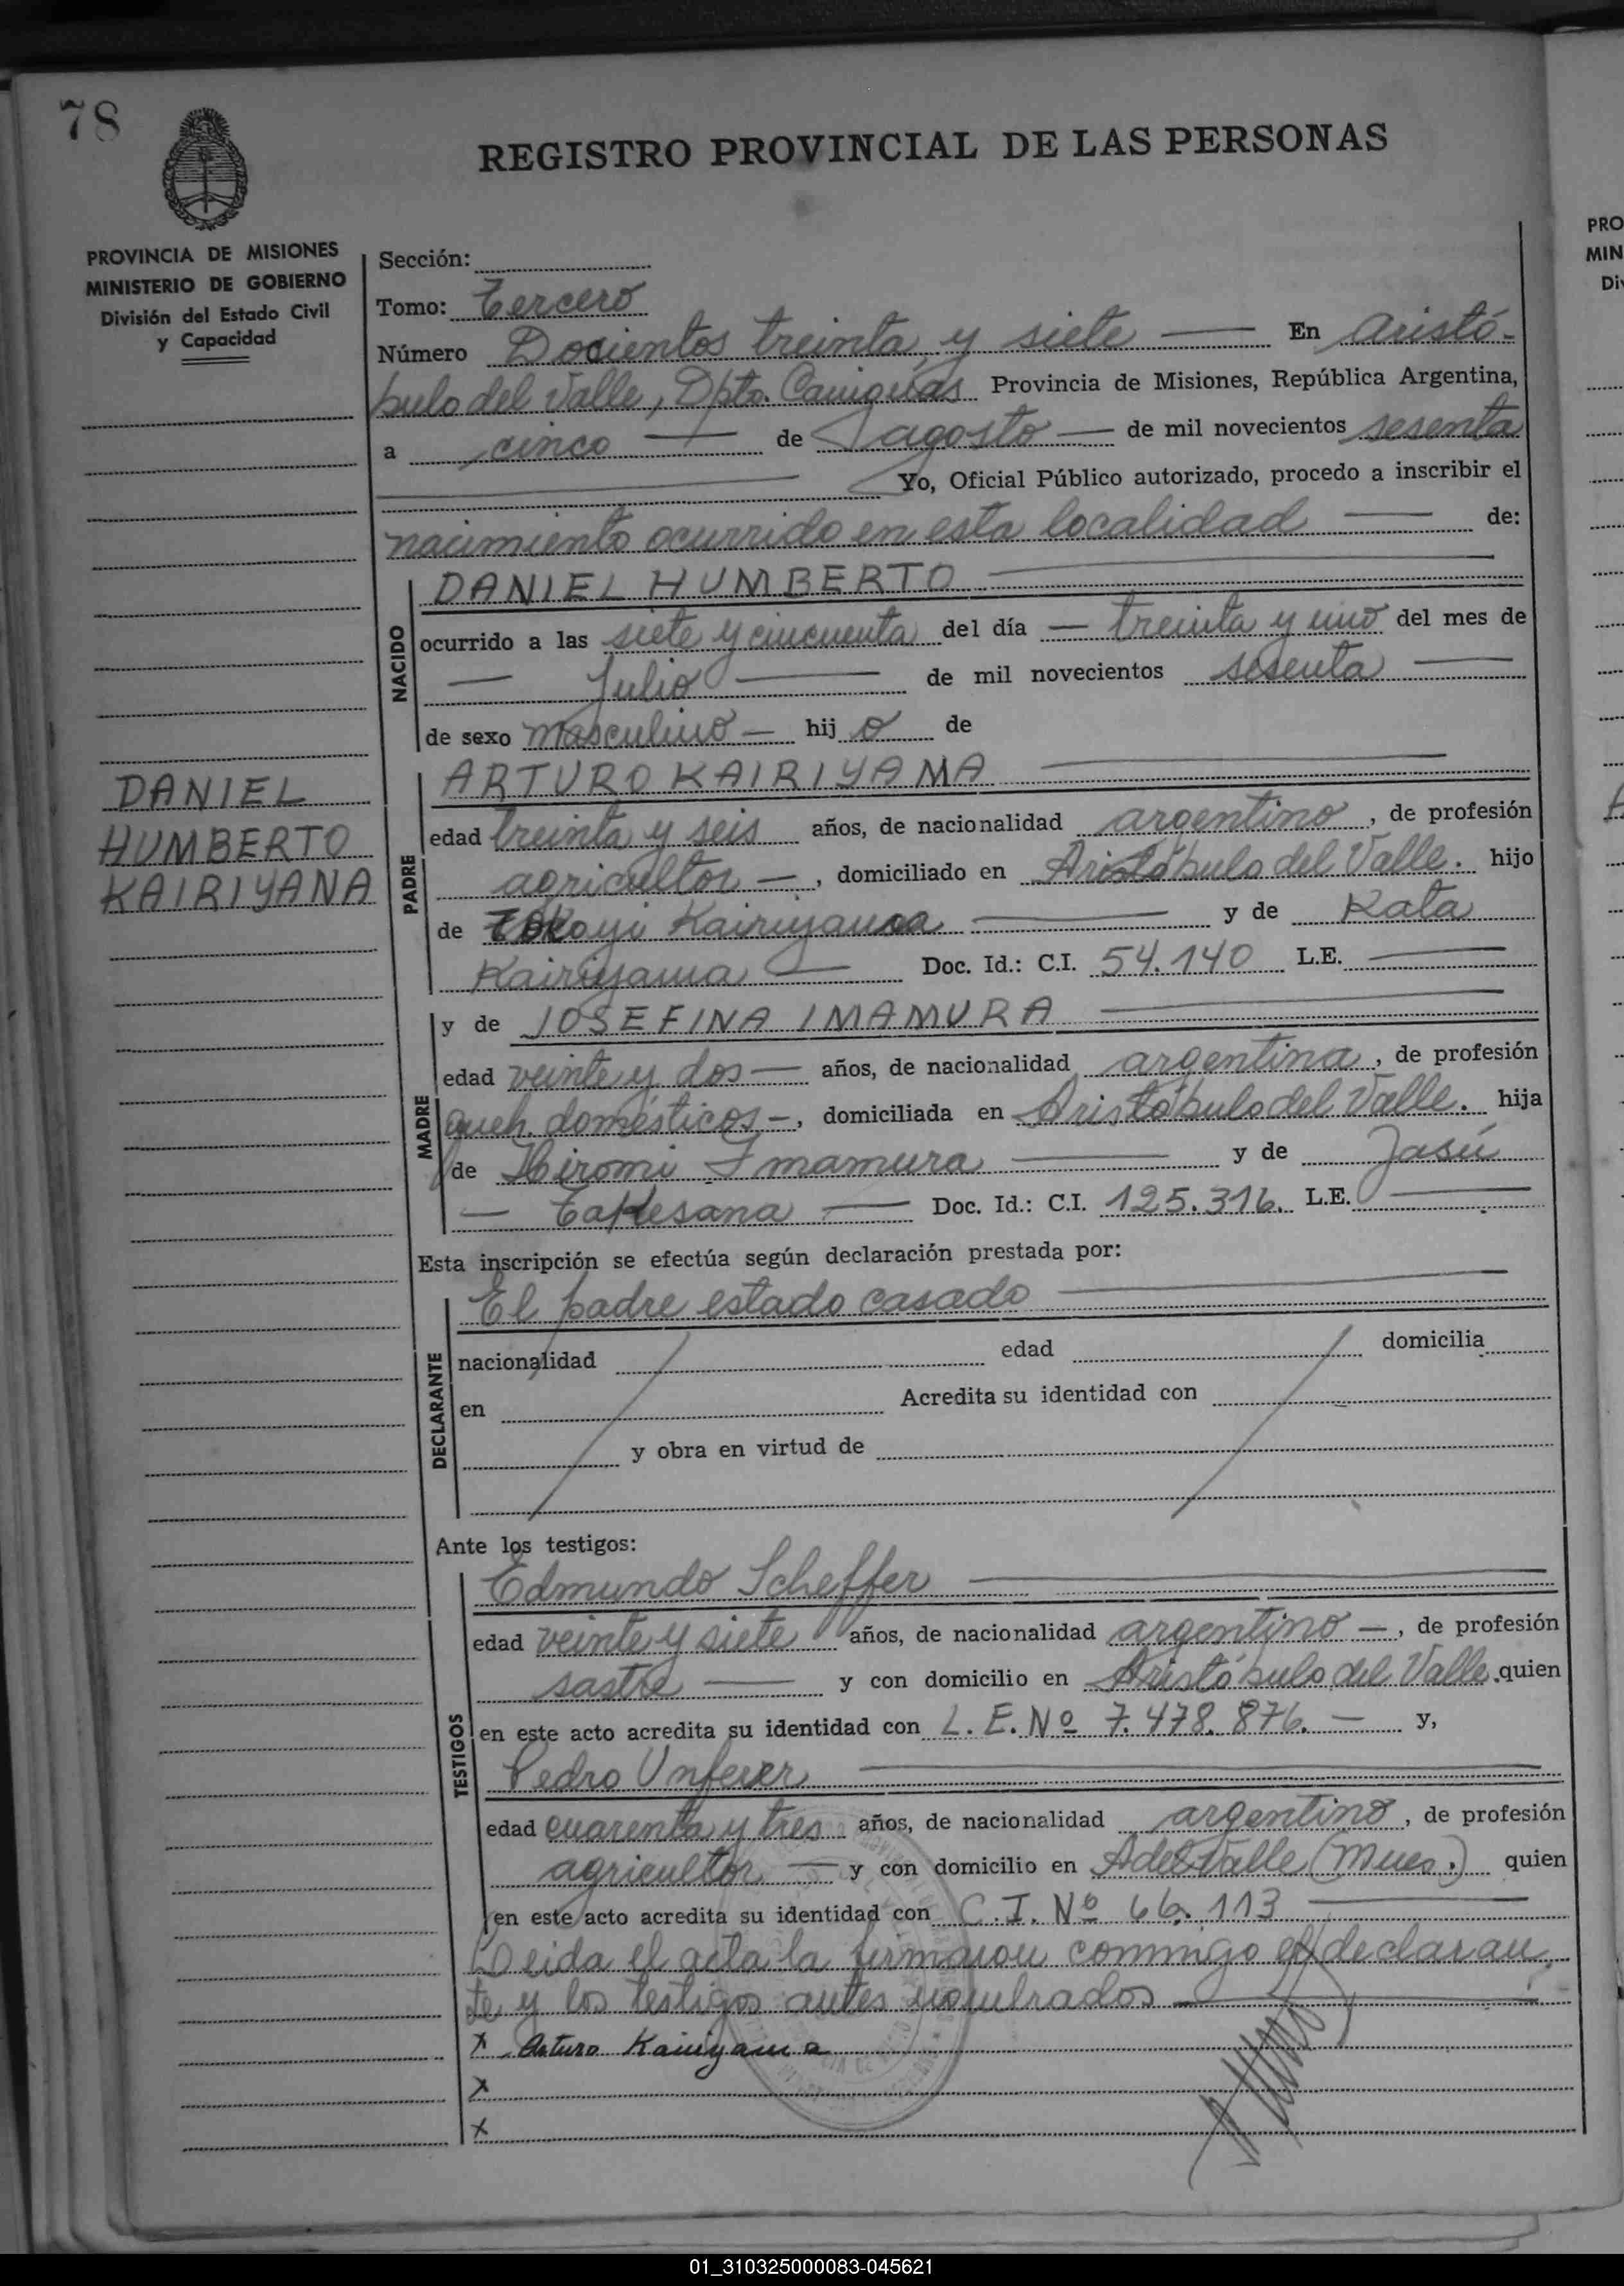 78
REGISTRO PROVINCIAL DE LAS PERSONAS
PROVINCIA DE MISIONES
MINISTERIO DE GOBIERNO
División del Estado Civil
y Capacidad
Sección:
Tomo: Tercero
Número Docientos treinta y siete — En Aristó-
bulo del Valle, Dpto. Cainguás Provincia de Misiones, República Argentina,
a cinco — de agosto — de mil novecientos sesenta
Yo, Oficial Público autorizado, procedo a inscribir el
nacimiento ocurrido en esta localidad — de:
NACIDO
DANIEL HUMBERTO —
ocurrido a las siete y cincuenta del día — treinta y uno del mes de
— Julio — de mil novecientos sesenta —
de sexo masculino — hijo de
DANIEL
HUMBERTO
KAIRIYANA
PADRE
ARTURO KAIRIYAMA —
edad treinta y seis años, de nacionalidad argentino, de profesión
agricultor —, domiciliado en Aristóbulo del Valle. hijo
de Kairiyama — y de Kata
Kairiyama — Doc. Id.: C.I. 54.140 L.E. —
MADRE
y de JOSEFINA IMAMURA —
edad veinte y dos — años, de nacionalidad argentina, de profesión
queh. domésticos —, domiciliada en Aristóbulo del Valle. hija
de Hiromi Imamura — y de Jasú
— Takesana — Doc. Id.: C.I. 125.316. L.E. —
Esta inscripción se efectúa según declaración prestada por:
DECLARANTE
El padre estado casado —
nacionalidad edad domicilia
en Acredita su identidad con
y obra en virtud de
Ante los testigos:
TESTIGOS
Edmundo Scheffer —
edad veinte y siete años, de nacionalidad argentino —, de profesión
sastre — y con domicilio en Aristóbulo del Valle. quien
en este acto acredita su identidad con L.E. Nº 7.478.876. — y,
Pedro —
edad cuarenta y tres años, de nacionalidad argentino, de profesión
agricultor — y con domicilio en A del Valle (Mnes.) quien
en este acto acredita su identidad con C.I. Nº 66.113 —
Leida el acta la firmaron conmigo el declaran
te y los testigos antes nombrados —
x Arturo Kairiyama
x
x
PRO
MIN
Div
01_310325000083-045621